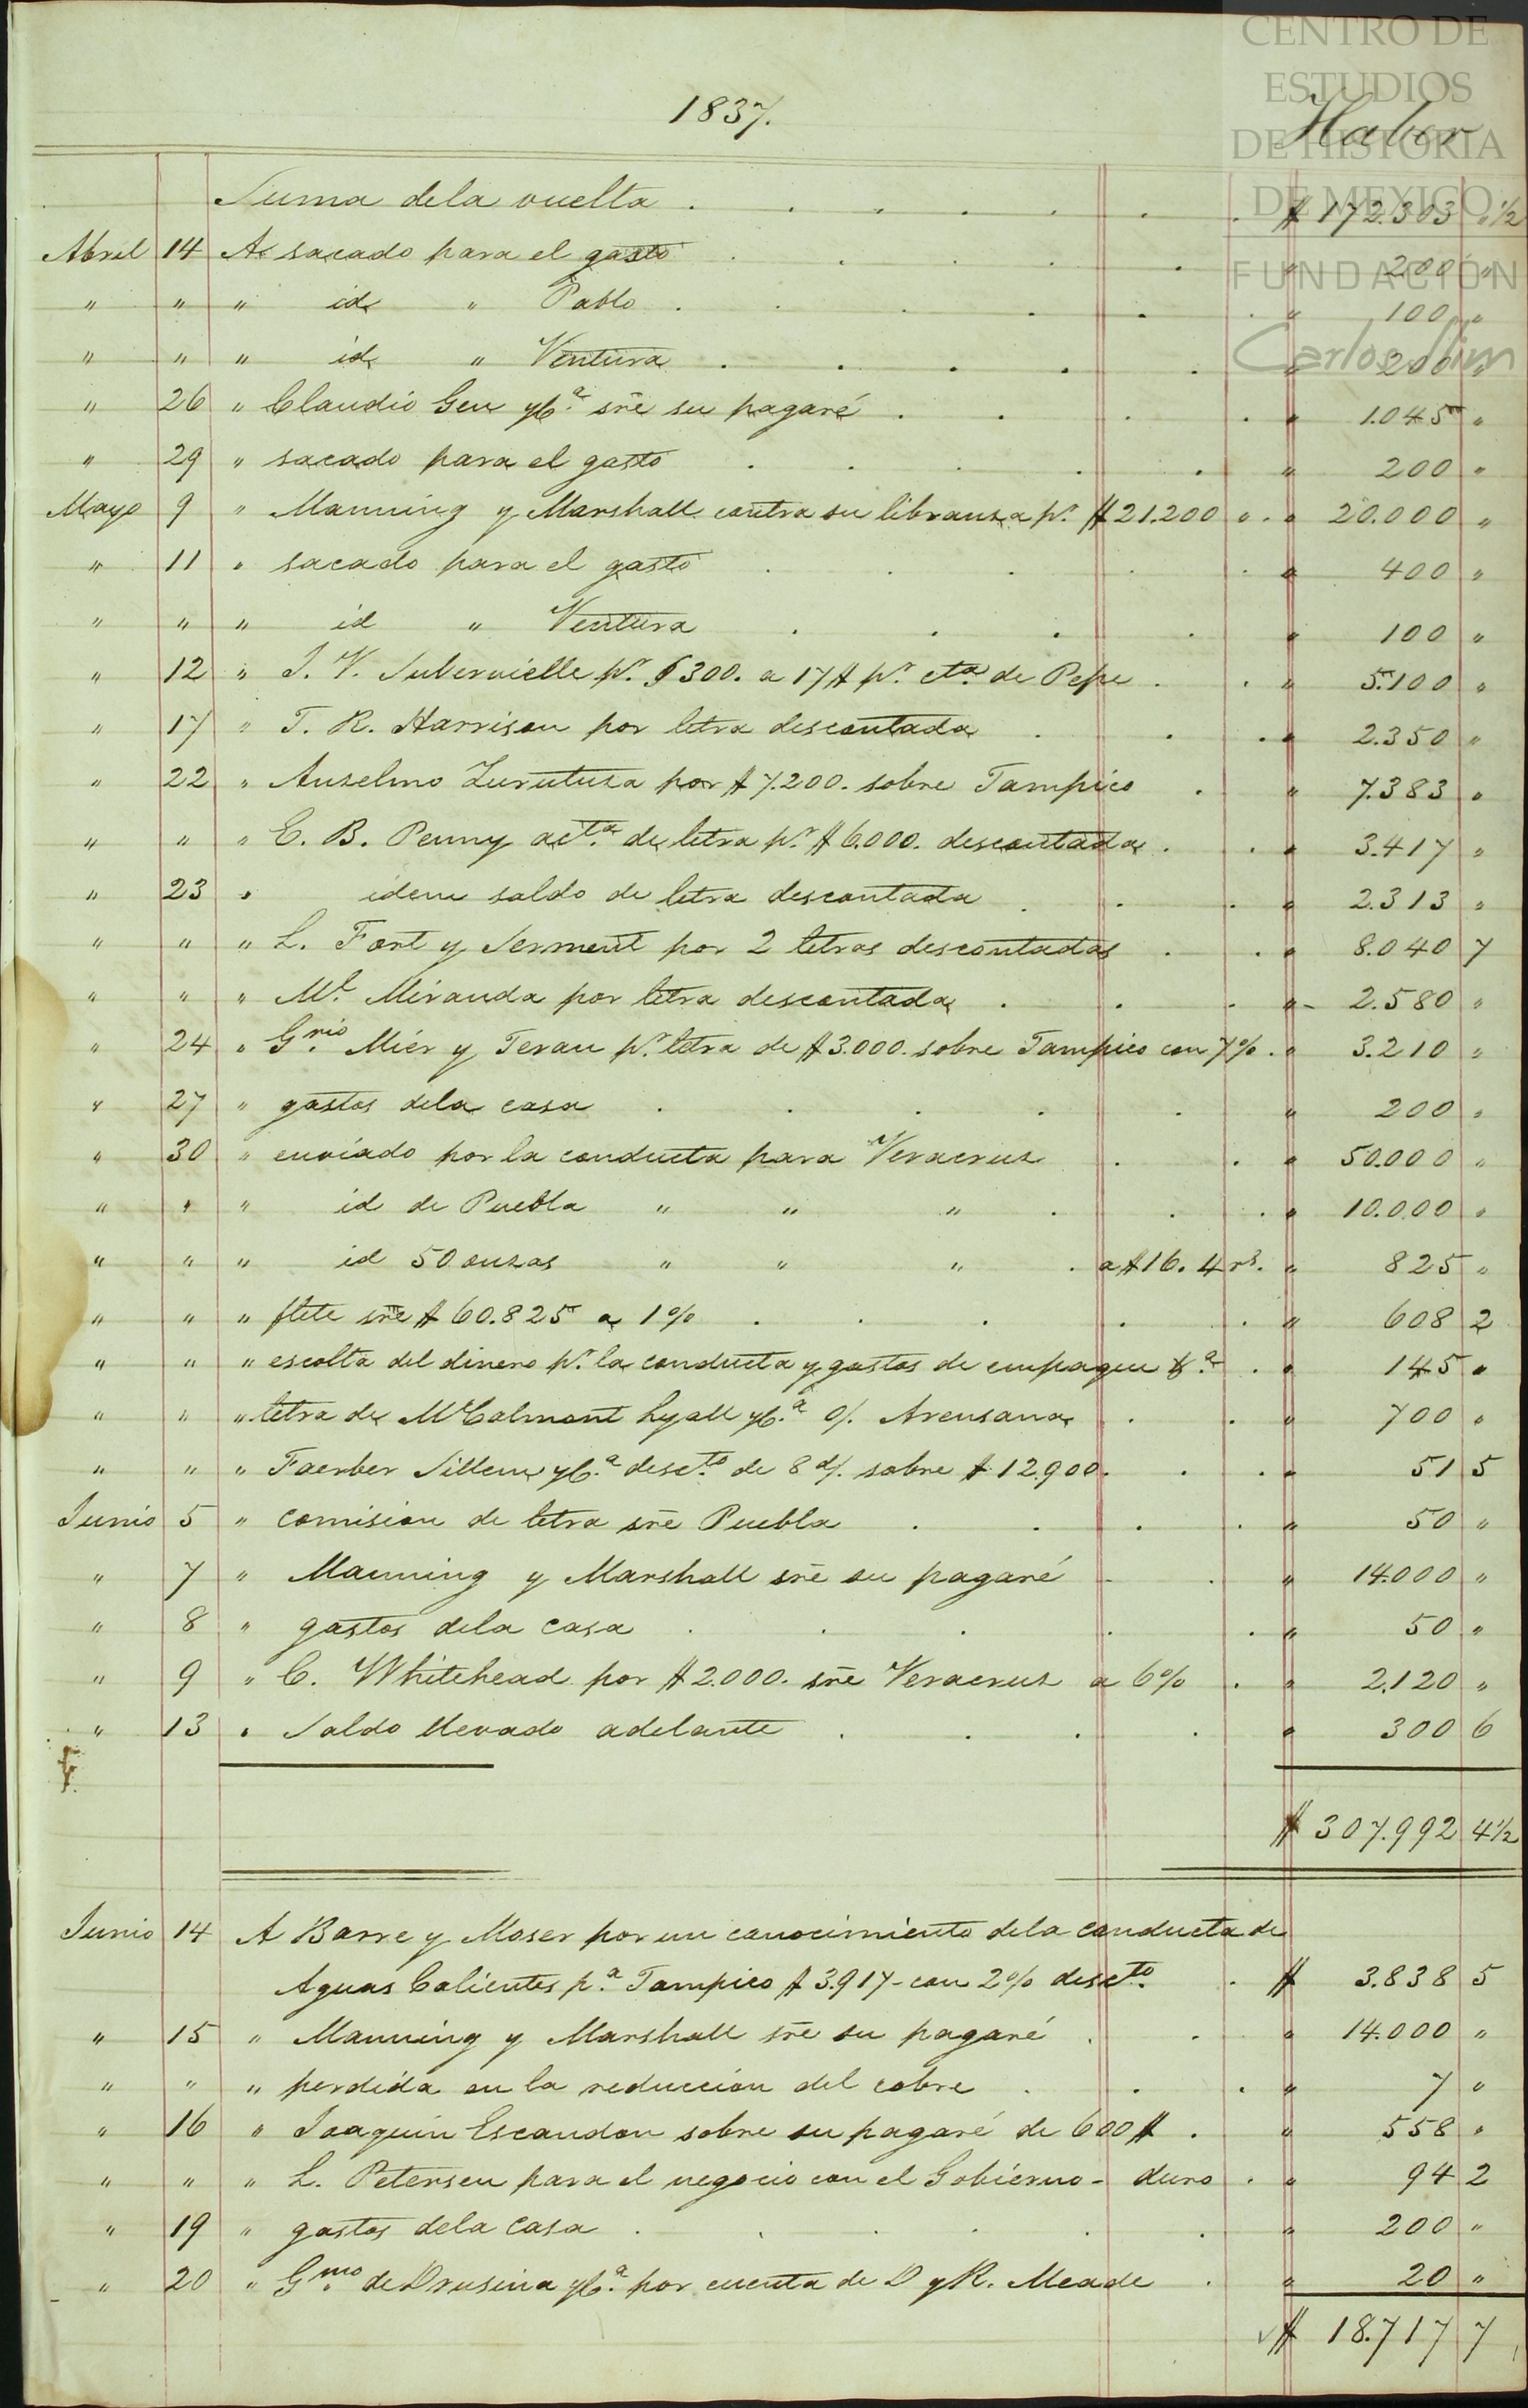 CENTRO DE
ESTUDIOS
DE HISTORIA
DE MEXICO
FUNDACIÓN
Carlos Slim
1837.
Haber
Suma dela vuelta . . . . . . . $ 172.303 " ½
Abril 14 A sacado para el gasto . . . . . " 200 "
" " " id " Pablo . . . . . " 100 "
" " " id " Ventura . . . . . " 200 "
" 26 " Claudio Gen yCª. sñe su pagaré . . . . " 1.045 "
" 29 " sacado para el gasto . . . . . " 200 "
Mayo 9 " Manning y Marshall contra su libranza pr. $ 21.200 " . " 20.000 "
" 11 " sacado para el gasto . . . . . " 400 "
" " " id " Ventura . . . . " 100 "
" 12 " J. V. Subervielle pr. $ 300. a 17 $ pr. cta. de Pepe . . " 5.100 "
" 17 " T. R. Harrison por letra descontada . . . " 2.350 "
" 22 " Anselmo Zurutuza por $ 7.200. sobre Tampico . " 7.383 "
" " " E. B. Penny acta. de letra pr. $ 6.000. descontada . . " 3.417 "
" 23 " idem saldo de letra descontada . . . " 2.313 "
" " " L. Fort y Serment por 2 letras descontadas . . " 8.040 7
" " " Ml. Miranda por letra descontada . . . " 2.580 "
" 24 " Grio. Miér y Teran pr. letra de $ 3.000. sobre Tampico con 7% . " 3.210 "
" 27 " gastos dela casa . . . . . " 200 "
" 30 " enviado por la conducta para Veracruz . . " 50.000 "
" " " id de Puebla " " " . . . " 10.000 "
" " " id 50 onzas " " " . a $ 16. 4 rs. " 825 "
" " " flete sñe $ 60.825 a 1% . . . . . " 608 2
" " " escolta del dinero pr. la conducta y gastos de empaque &ª. . " 145 "
" " " letra de McCalmont Lyall yCª. o/. Arensana . . " 700 "
" " " Faerber Sillem yCª. desct°. de 8 d/. sobre $ 12.900. . . " 51 5
Junio 5 " comision de letra sñe Puebla . . . . " 50 "
" 7 " Manning y Marshall sñe su pagaré . . " 14.000 "
" 8 " gastos dela casa . . . . . " 50 "
" 9 " C. Whitehead por $ 2.000. sñe Veracruz a 6% . " 2.120 "
" 13 " Saldo llevado adelante . . . . " 300 6
$ 307.992 4½
Junio 14 A Barre y Moser por un conocimiento dela conducta de
Aguas Calientes pª. Tampico $ 3.917 - con 2% desct°. . $ 3.838 5
" 15 " Manning y Marshall sñe su pagaré . . " 14.000 "
" " " perdida en la reduccion del cobre . . . " 7 "
" 16 " Joaquin Escandon sobre su pagaré de 600 $ . " 558 "
" " " L. Petersen para el negocio con el Gobierno - duro . " 94 2
" 19 " gastos dela casa . . . . . " 200 "
" 20 " Gmo. de Drusina yCª. por cuenta de D y R. Meade . " 20 "
$ 18.717 7